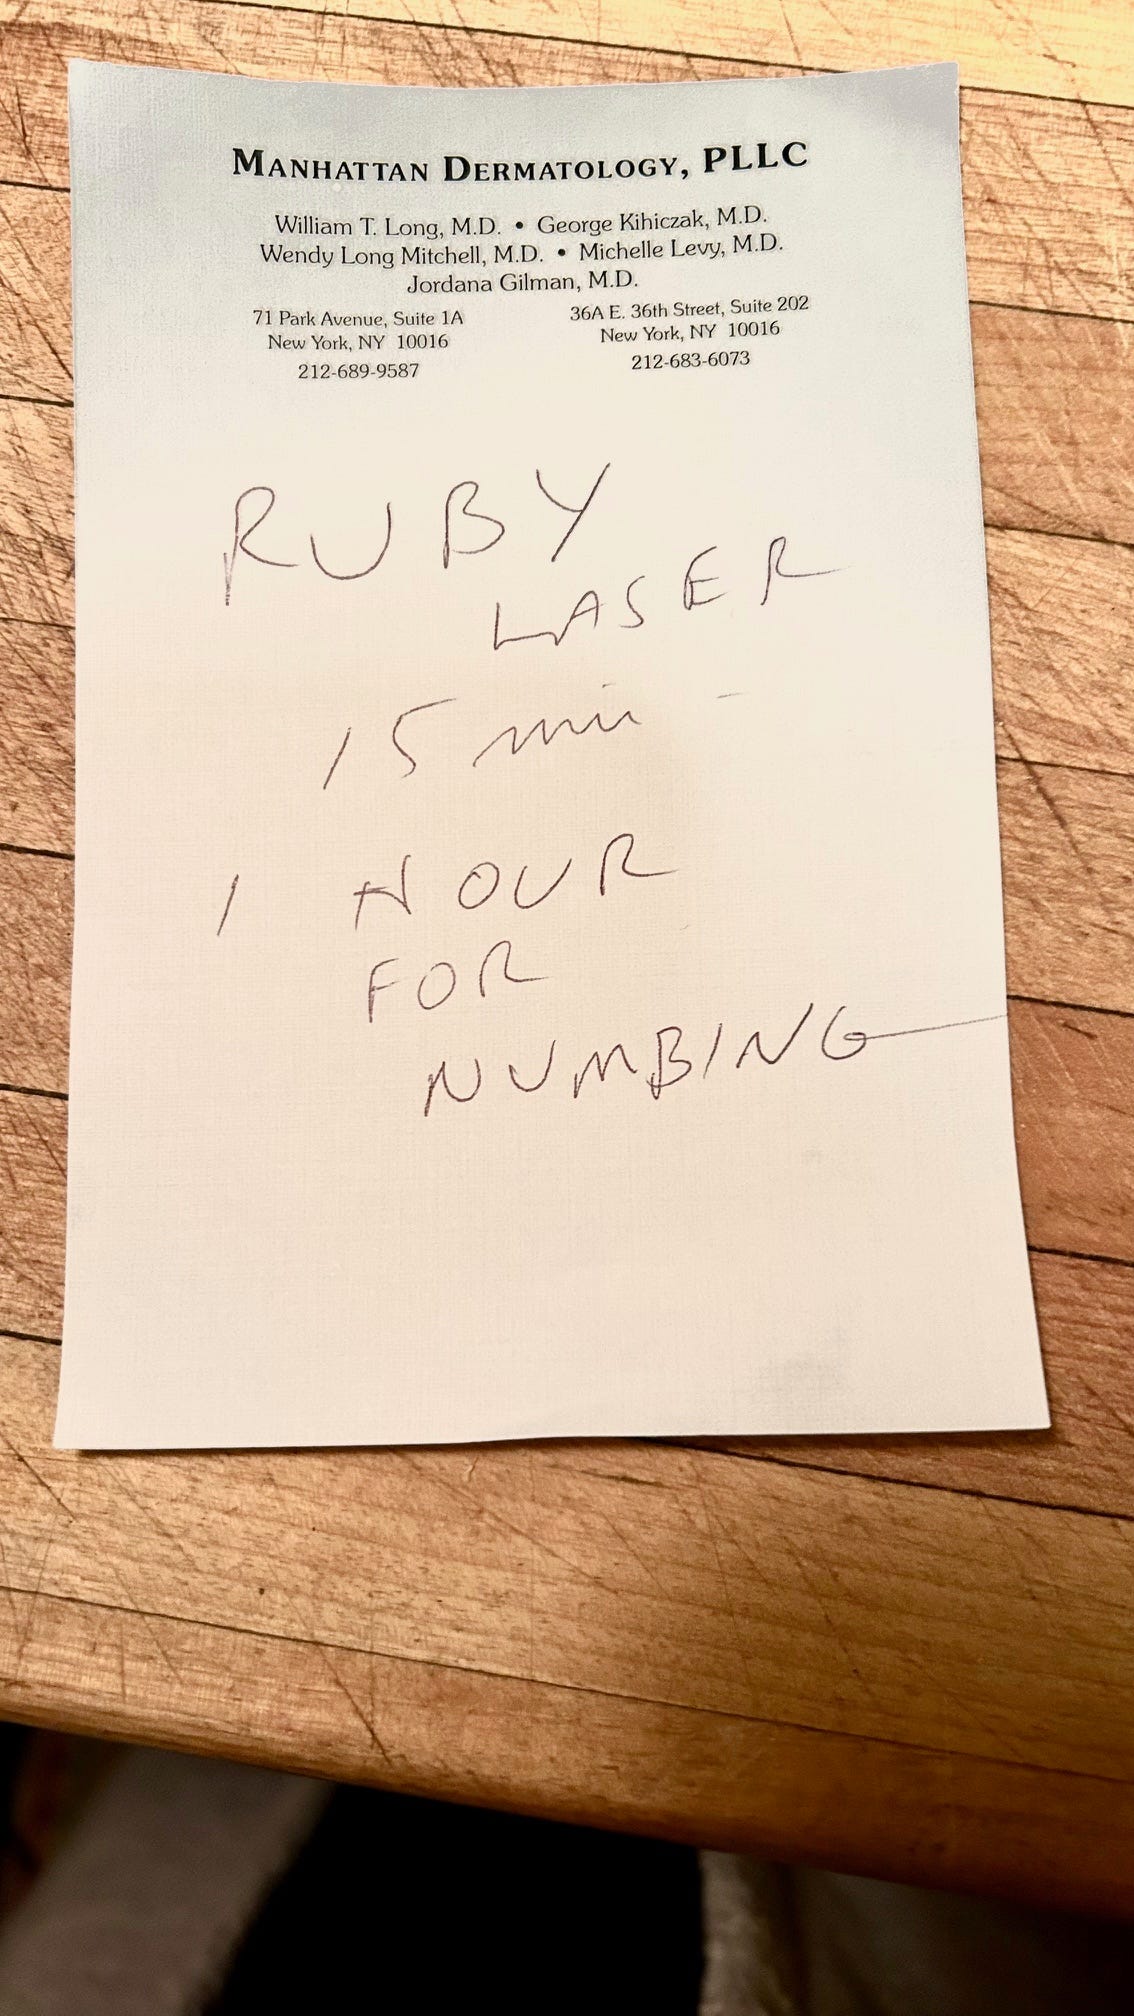 MANHATTAN DERMATOLOGY, PLLC
William T. Long, M.D. • George Kihiczak, M.D.
Wendy Long Mitchell, M.D. • Michelle Levy, M.D.
Jordana Gilman, M.D.
71 Park Avenue, Suite 1A
New York, NY 10016
212-689-9587
36A E. 36th Street, Suite 202
New York, NY 10016
212-683-6073
RUBY
LASER
15 min -
1 HOUR
FOR
NUMBING